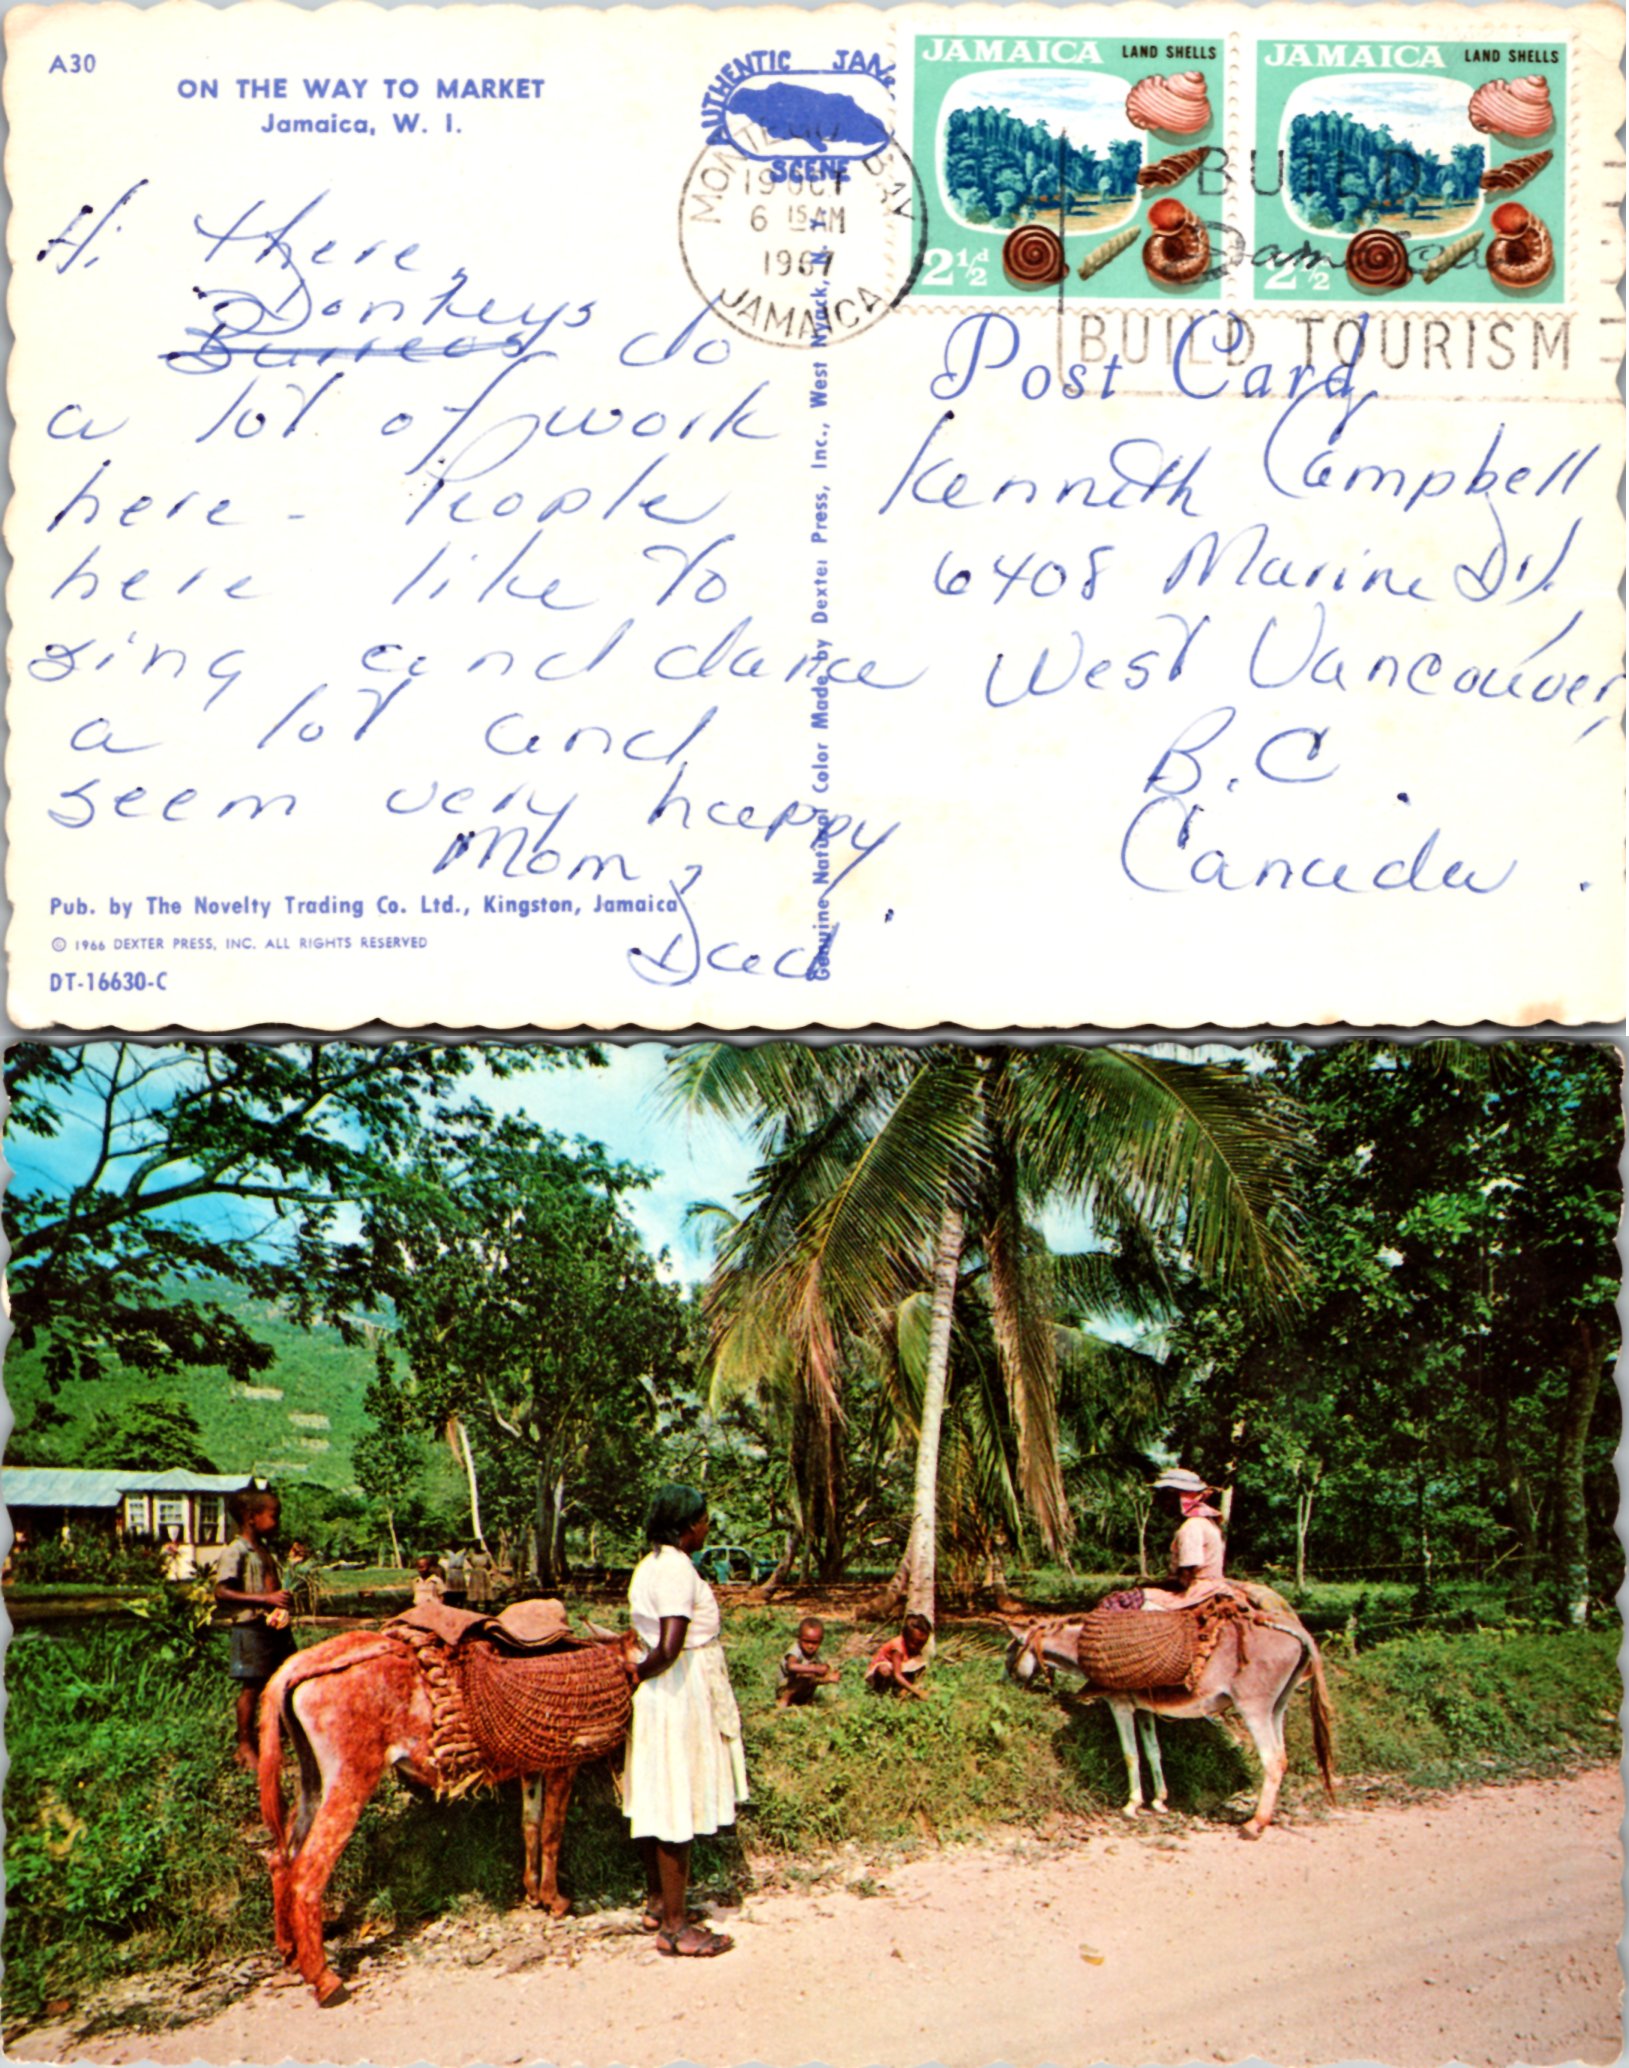 A30
ON THE WAY TO MARKET
Jamaica, W. I.
Hi there,
Donkeys
Burreos do
a lot of work
here - People
here like to
sing and dance
a lot and
seem very happy
Mom,
Dad
Pub. by The Novelty Trading Co. Ltd., Kingston, Jamaica
© 1966 DEXTER PRESS, INC. ALL RIGHTS RESERVED
DT-16630-C
AUTHENTIC JAM.
SCENE
MONTEGO BAY
19 OCT
6 15 AM
1967
JAMAICA
Genuine Natural Color Made by Dexter Press, Inc., West Nyack, N. Y.
JAMAICA LAND SHELLS
2½d
JAMAICA LAND SHELLS
2½
BUILD
Jamaica
BUILD TOURISM
Post Card
Kenneth Campbell
6408 Marine Dr.
West Vancouver,
B.C.
Canada.